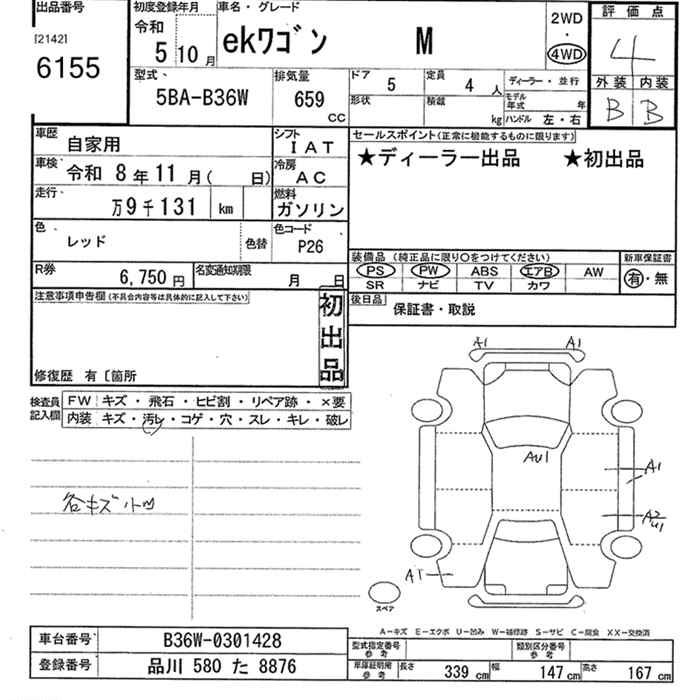 出品番号 初度登録年月 車名・グレード 2WD 評価点
[2142] 令和 ・ 4
6155 5 年 10 月 ekワゴン M 4WD 外装 内装
型式 排気量 ドア 5 定員 4 人 ディーラー・並行 B B
5BA-B36W 659 CC 形状 積載 kg モデル年式 年
ハンドル 左・右
車歴 自家用 シフト IAT セールスポイント(正常に機能するものに限ります)
車検 令和 8 年 11 月 ( 日) 冷房 AC ★ディーラー出品 ★初出品
走行 万9千131 km 燃料 ガソリン
色 レッド 色替 色コード P26
装備品 (純正品に限り○をつけてください) 新車保証書
PS PW ABS エアB AW 有・無
R券 6,750 円 名変通知期限 月 日 SR ナビ TV カワ
注意事項申告欄 (不具合内容等は具体的に記入して下さい) 初出品 後日品 保証書・取説
修復歴 有 [箇所
検査員記入欄 FW キズ・飛石・ヒビ割・リペア跡・×要
内装 キズ・汚レ・コゲ・穴・スレ・キレ・破レ
A1 A1
AU1
A1
A2
U1
各キズ小凹
A1
スペア
A-キズ E-エクボ U-凹み W-補修跡 S-サビ C-腐食 XX-交換済
車台番号 B36W-0301428 型式指定番号 参考 類別区分番号 参考
登録番号 品川 580 た 8876 車庫証明用 参考 長さ 339 cm 幅 147 cm 高さ 167 cm